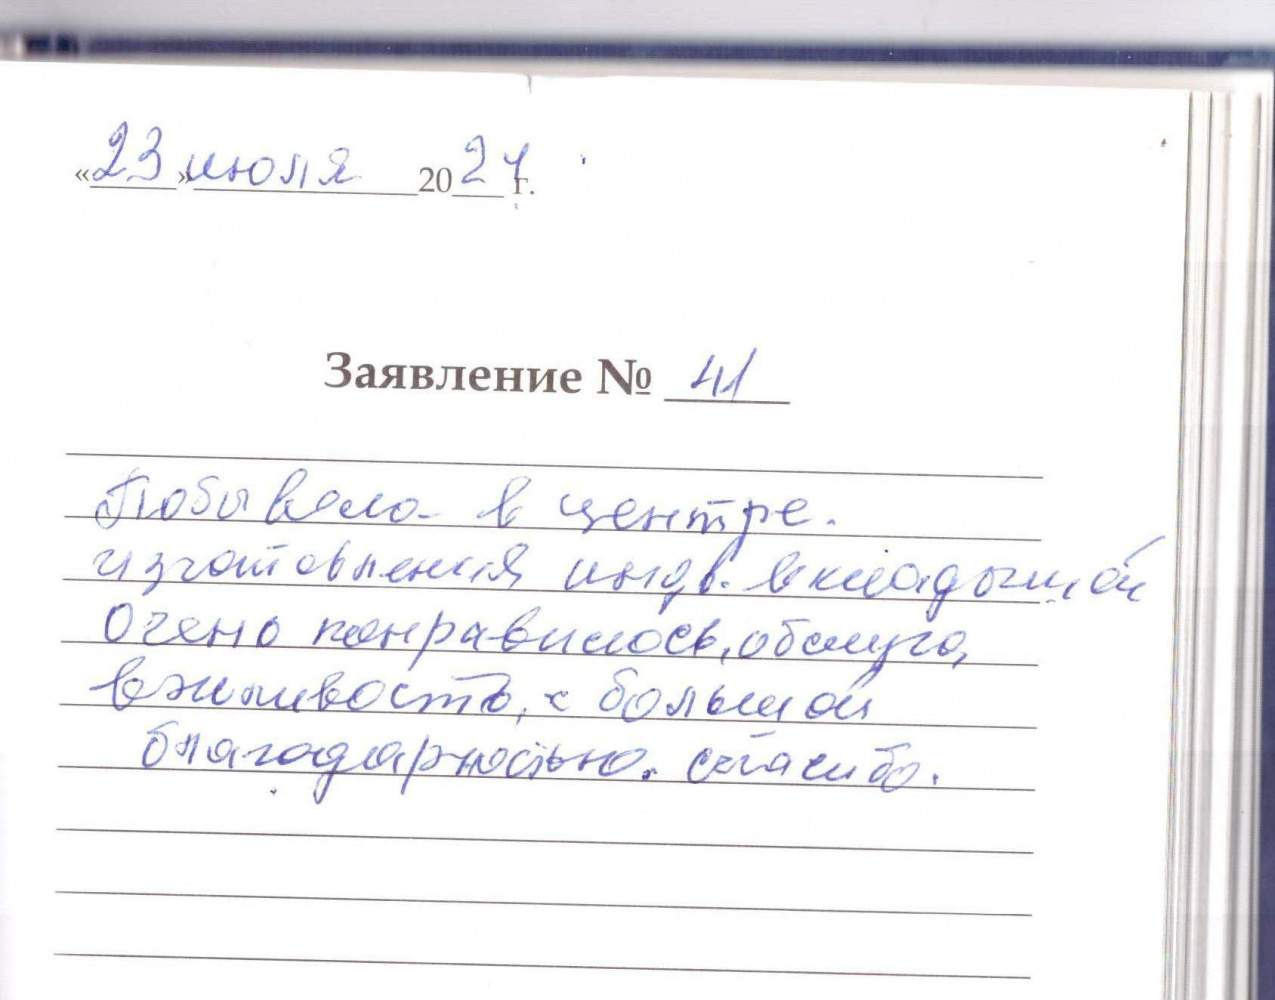 «23» июля 2024 г.
Заявление № 41
Побывала в центре.
изготовления инд. вкладышей
Очень понравилось, обслуга,
вжливость, с большой
благодарностью. спасибо.